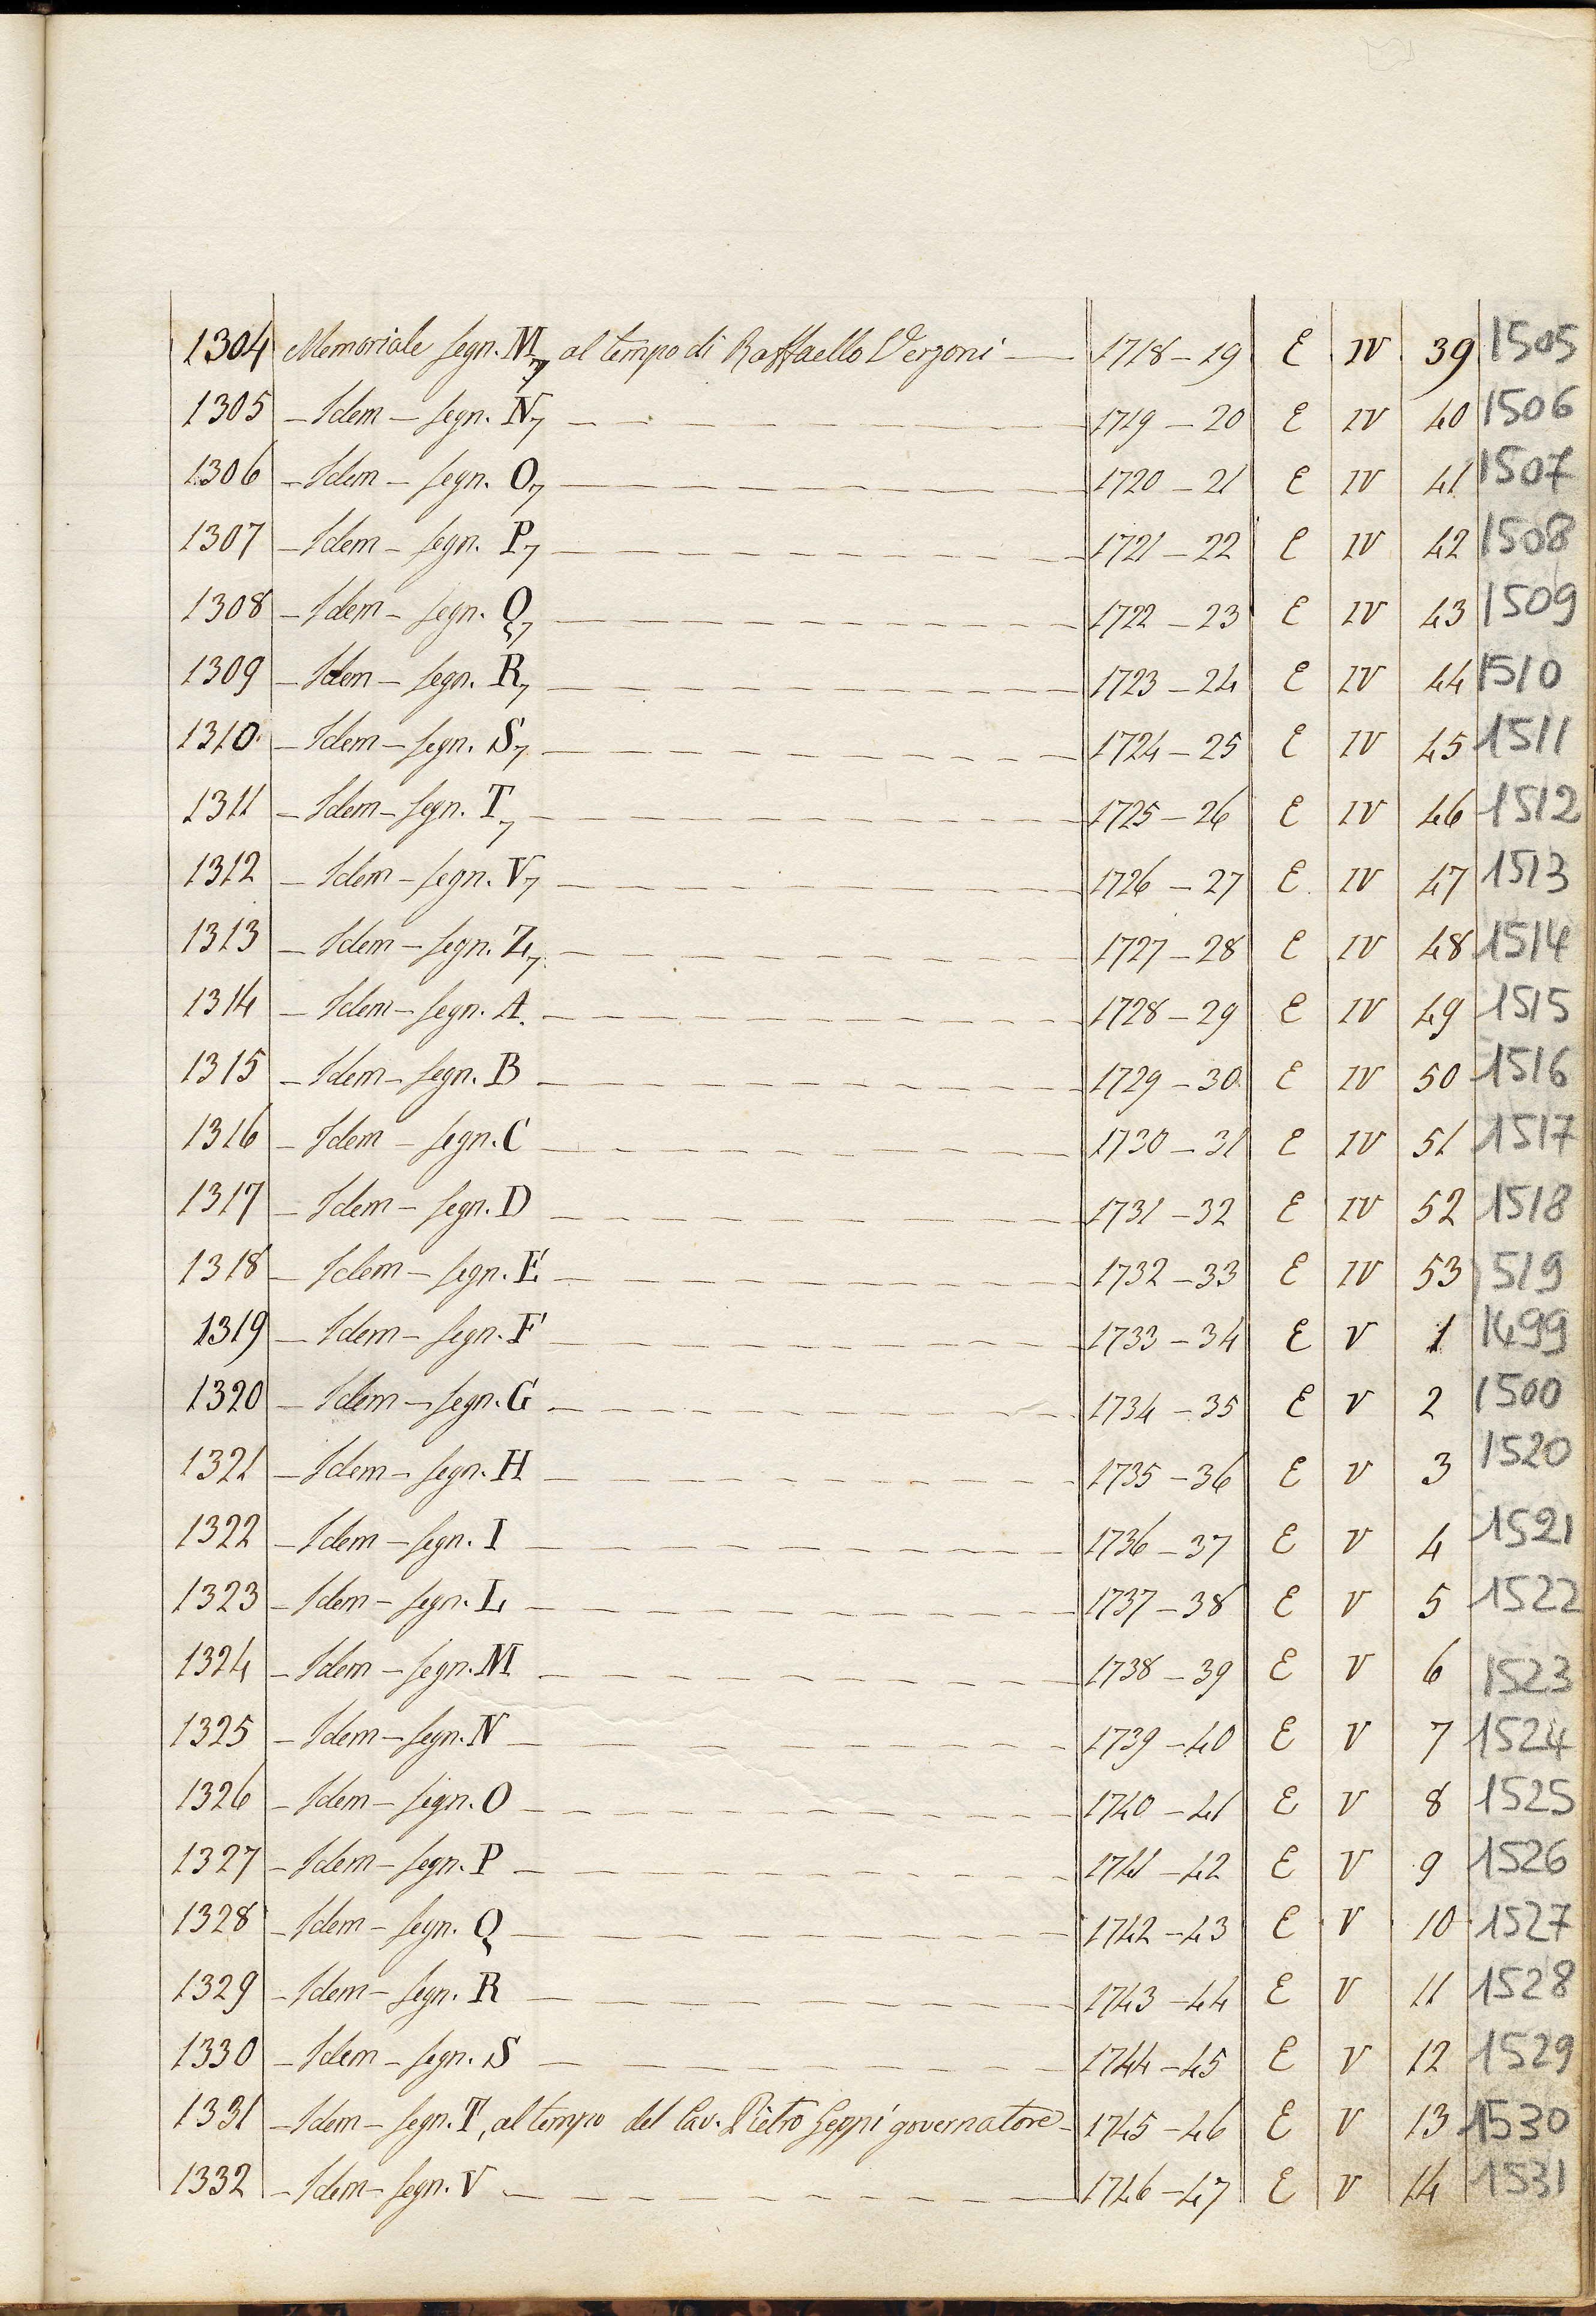 1304 Memoriale segn. M7 al tempo di Raffaello Verzoni — 1718 – 19 E IV 39 1505
1305 – Idem – segn. N7 — 1719 – 20 E IV 40 1506
1306 – Idem – segn. O7 — 1720 – 21 E IV 41 1507
1307 – Idem – segn. P7 — 1721 – 22 E IV 42 1508
1308 – Idem – segn. Q7 — 1722 – 23 E IV 43 1509
1309 – Idem – segn. R7 — 1723 – 24 E IV 44 1510
1310 – Idem – segn. S7 — 1724 – 25 E IV 45 1511
1311 – Idem – segn. T7 — 1725 – 26 E IV 46 1512
1312 – Idem – segn. V7 — 1726 – 27 E IV 47 1513
1313 – Idem – segn. Z7 — 1727 – 28 E IV 48 1514
1314 – Idem – segn. A. — 1728 – 29 E IV 49 1515
1315 – Idem – segn. B — 1729 – 30 E IV 50 1516
1316 – Idem – segn. C — 1730 – 31 E IV 51 1517
1317 – Idem – segn. D — 1731 – 32 E IV 52 1518
1318 – Idem – segn. E — 1732 – 33 E IV 53 1519
1319 – Idem – segn. F — 1733 – 34 E V 1 1499
1320 – Idem – segn. G — 1734 – 35 E V 2 1500
1321 – Idem – segn. H — 1735 – 36 E V 3 1520
1322 – Idem – segn. I — 1736 – 37 E V 4 1521
1323 – Idem – segn. L — 1737 – 38 E V 5 1522
1324 – Idem – segn. M — 1738 – 39 E V 6 1523
1325 – Idem – segn. N — 1739 – 40 E V 7 1524
1326 – Idem – segn. O — 1740 – 41 E V 8 1525
1327 – Idem – segn. P — 1741 – 42 E V 9 1526
1328 – Idem – segn. Q — 1742 – 43 E V 10 1527
1329 – Idem – segn. R — 1743 – 44 E V 11 1528
1330 – Idem – segn. S — 1744 – 45 E V 12 1529
1331 – Idem – segn. T, al tempo del Cav. Pietro Geppi governatore – 1745 – 46 E V 13 1530
1332 – Idem – segn. V — 1746 – 47 E V 14 1531